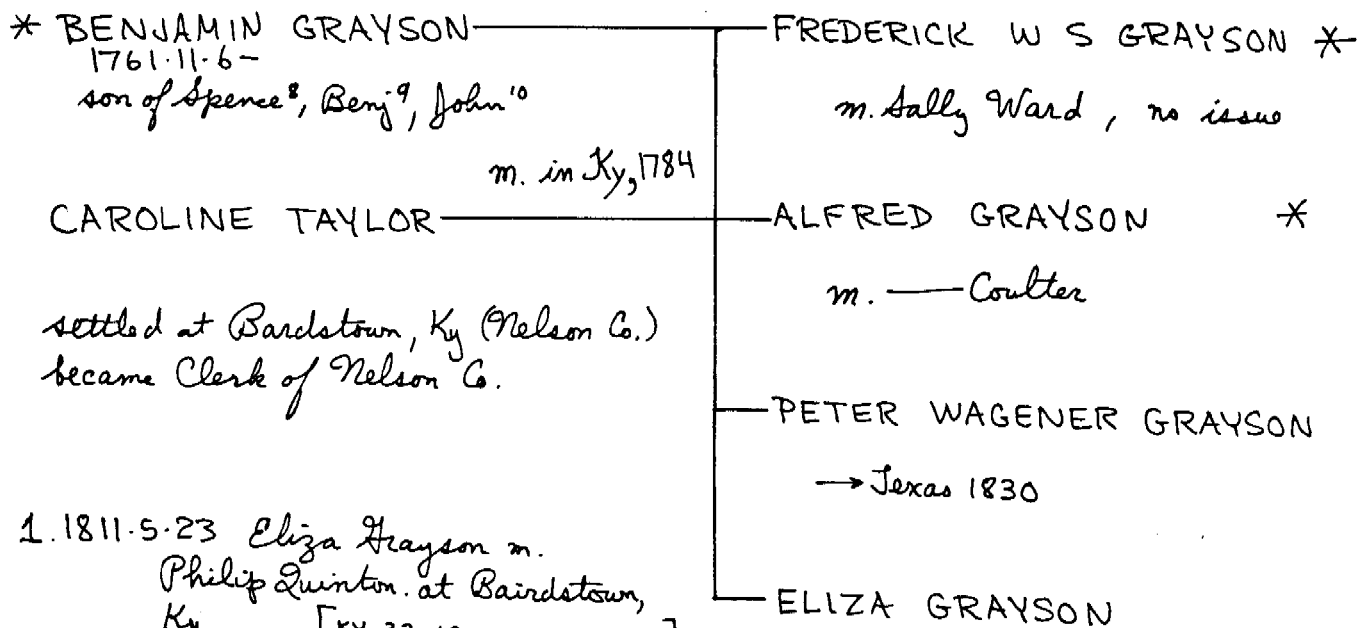 * BENJAMIN GRAYSON
1761·11·6–
son of Spence⁸, Benj⁹, John¹⁰
m. in Ky, 1784
CAROLINE TAYLOR
settled at Bardstown, Ky (Nelson Co.)
became Clerk of Nelson Co.
1. 1811·5·23 Eliza Grayson m.
Philip Quinton. at Bairdstown,
Ky
FREDERICK W S GRAYSON *
m. Sally Ward, no issue
ALFRED GRAYSON *
m. —— Coulter
PETER WAGENER GRAYSON
→ Texas 1830
ELIZA GRAYSON